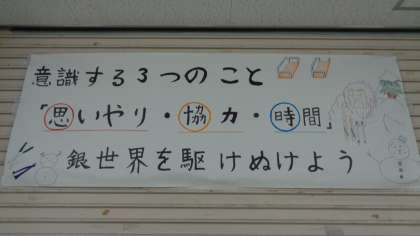 意識する3つのこと
「思いやり・協力・時間」
銀世界を駆けぬけよう